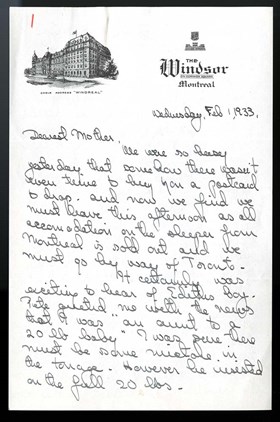 THE
Windsor
Montreal
Wednesday, Feb 1, 1933,
Dearest Mother,
We were so busy
yesterday that somehow there wasn't
even time to buy you a postcard
to drop. and now we find we
must leave this afternoon as all
accomodation on the sleeper from
Montreal is sold out and we
must go by way of Toront.
It certainly was
exciting to hear of
greeted me with the news
that "I was an aunt to a
20 lb baby". I was sure there
must be some mistake in
the tonnage. However he insisted
on the full 20 lbs.